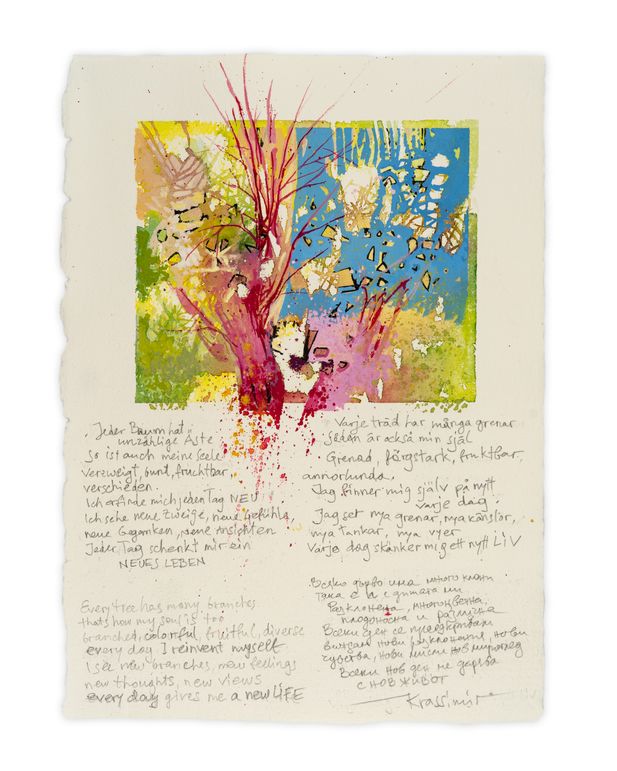 Jeder Baum hat
unzählige Äste
So ist auch meine Seele
verzweigt, bunt, fruchtbar
verschieden.
Ich erfinde mich jeden Tag NEU
Ich sehe neue Zweige, neue Gefühle
neue Gedanken, neue Ansichten
Jeder Tag schenkt mir ein
NEUES LEBEN
Varje träd har många grenar
sådan är också min själ
Grenad, färgstark, fruktbar,
annorlunda.
Jag finner mig själv på nytt
varje dag.
Jag ser nya grenar, nya känslor,
nya tankar, nya vyer
Varje dag skänker mig ett nytt LIV
Every tree has many branches
thats how my soul is too
branched, colorful, fruitful, diverse
every day I reinvent myself
I see new branches, new feelings
new thoughts, new views
every day gives me a new LIFE
Всяко дърво има много клони
така е и с душата ми
Разклонена, многоцветна,
плодоносна и различна
Всеки ден се
виждам нови разклонения, нови
чувства, нови мисли нов мироглед
Всеки нов ден ме дарява
с НОВ ЖИВОТ
Krassimir